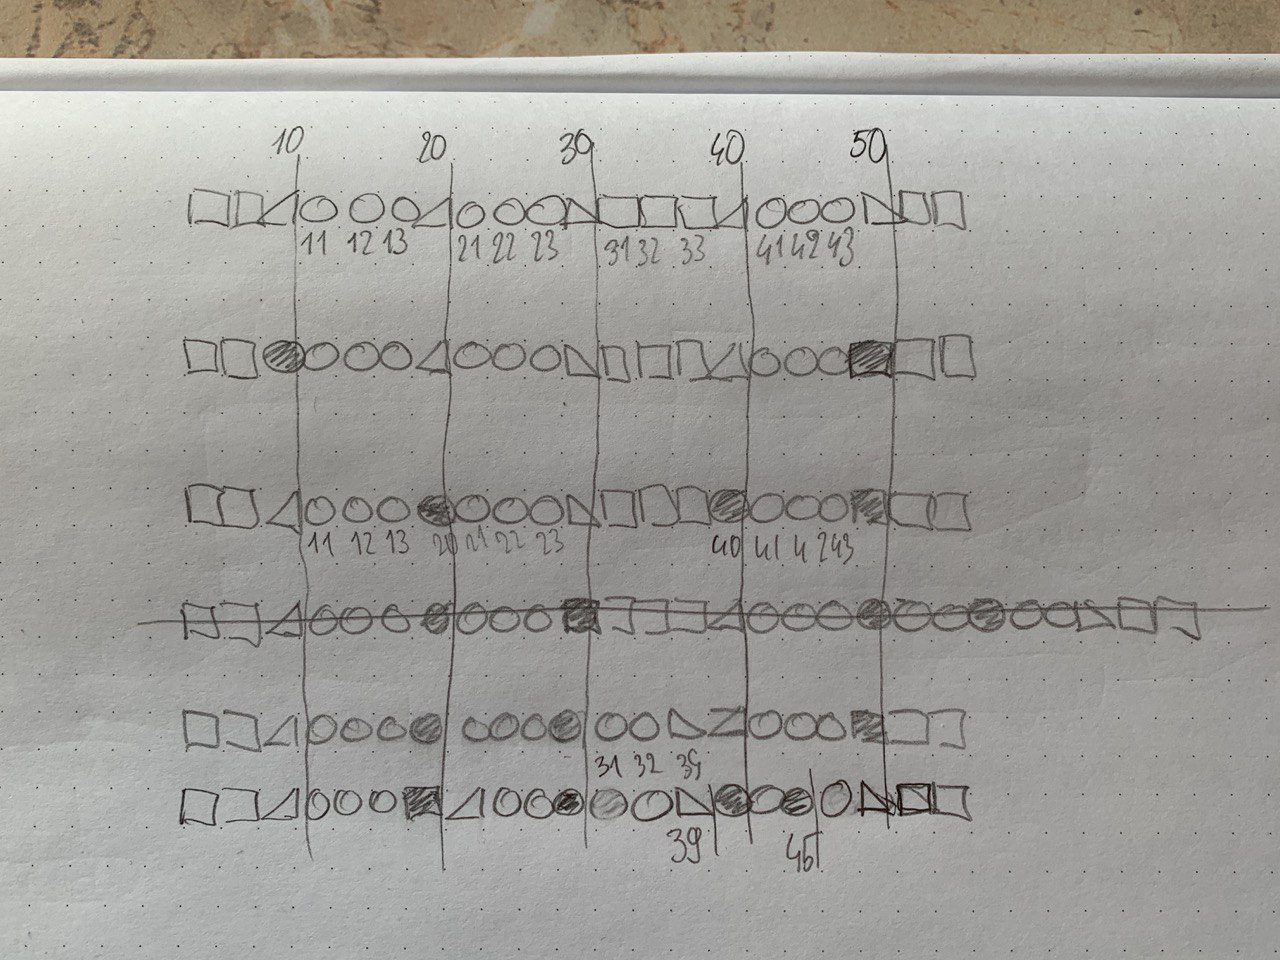 10 20 30 40 50
11 12 13 21 22 23 31 32 33 41 42 43
11 12 13 20 21 22 23 40 41 42 43
31 32 39
39 45